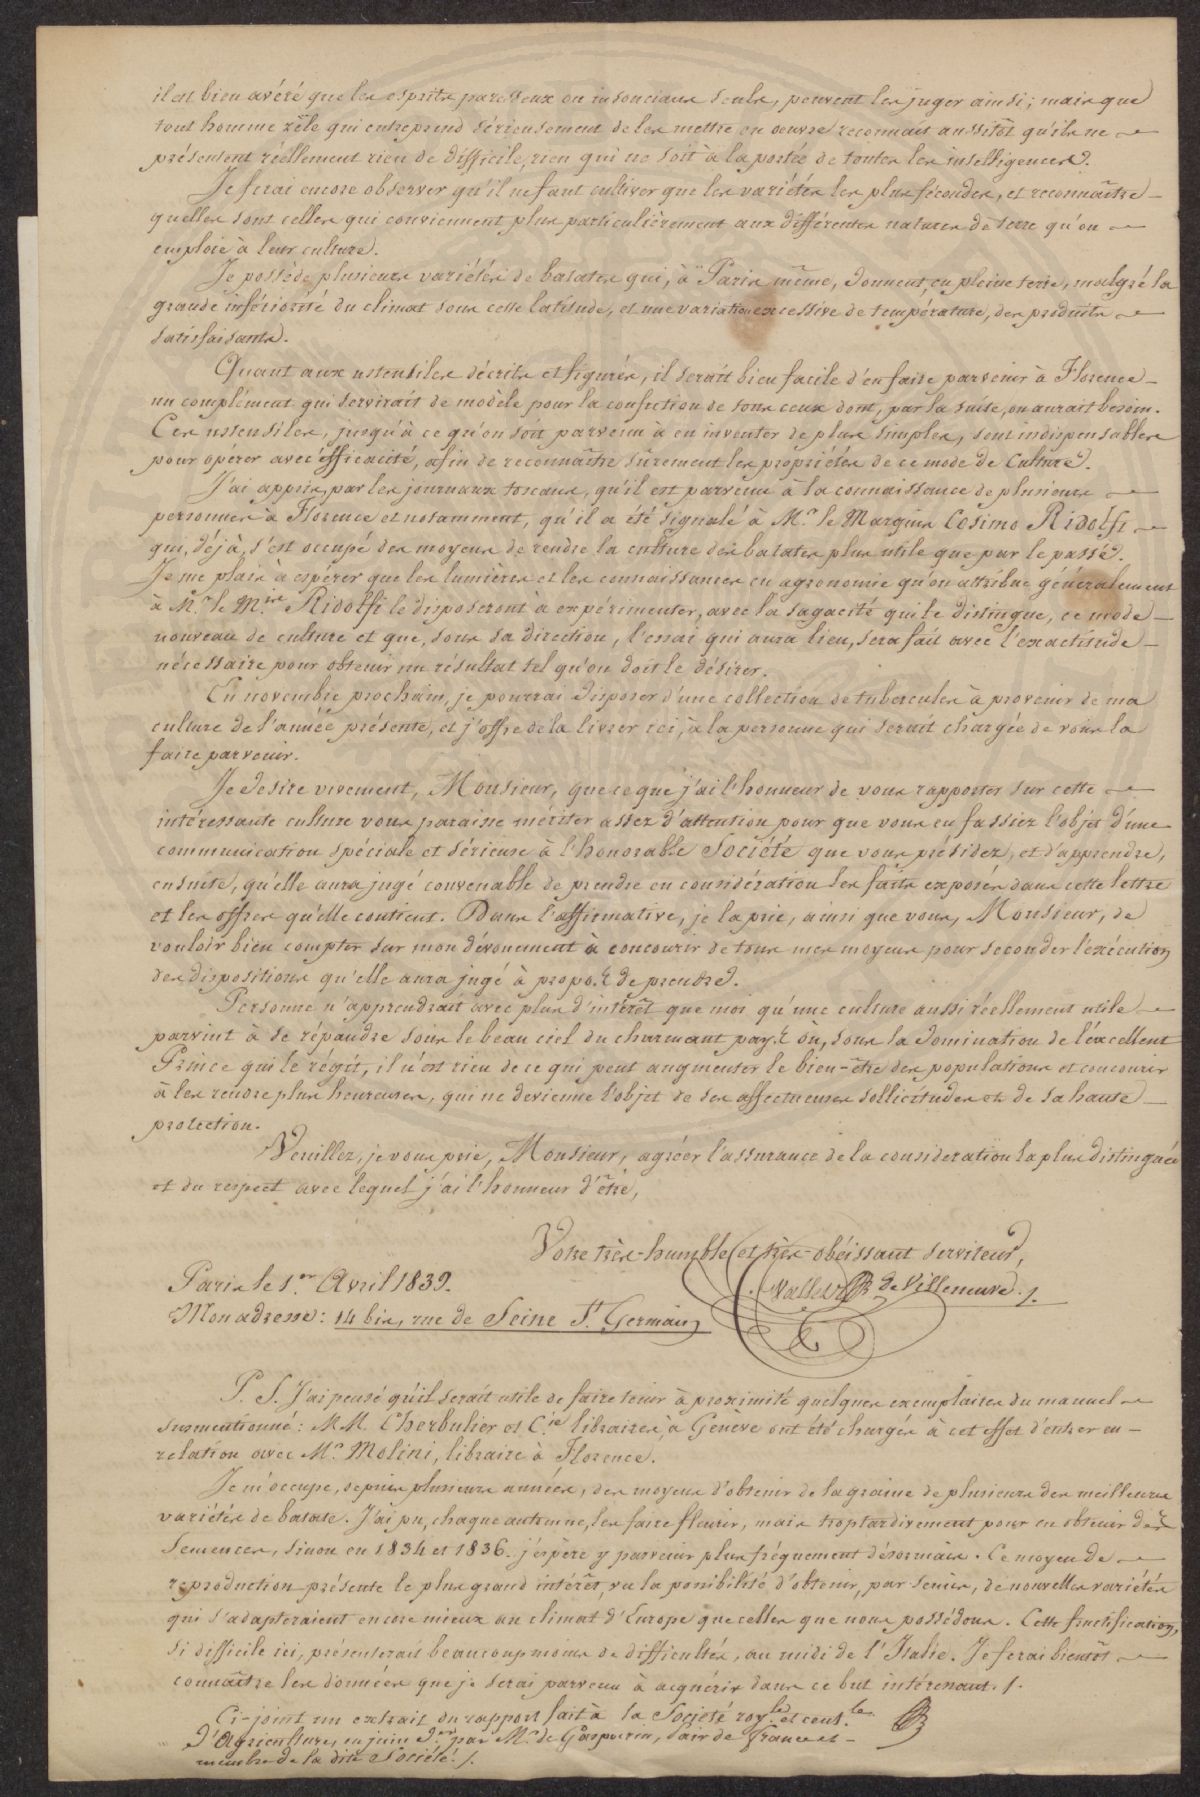 il est bien avéré que les esprits paresseux ou insouciants seuls, peuvent les juger ainsi; mais que
tout homme zèlé qui entreprend sérieusement de les mettre en œuvre reconnait aussitôt qu'ils ne
présentent réellement rien de difficile, rien qui ne soit à la portée de toutes les intelligences.
Je ferai encore observer qu'il ne faut cultiver que les variétés les plus fécondes, et reconnaître
quelles sont celles qui conviennent plus particulièrement aux différentes natures de terre qu'on
emploie à leur culture.
Je possède plusieurs variétés de batates qui, à Paris même, donnent, en pleine terre, malgré la
grande infériorité du climat sous cette latitude, et une variation excessive de température, des produits
satisfaisants.
Quant aux ustensiles décrits et figurés, il serait bien facile d'en faire parvenir à Florence
un complément qui servirait de modèle pour la confection de tous ceux dont, par la suite, on aurait besoin.
Ces ustensiles, jusqu'à ce qu'on soit parvenu à en inventer de plus simples, sont indispensables
pour opérer avec éfficacité, afin de reconnaître sûrement les propriétés de ce mode de culture.
J'ai appris, par les journaux toscans, qu'il est parvenu à la connaissance de plusieurs
personnes à Florence et notamment, qu'il a été signalé à M.r le Marquis Cosimo Ridolfi
qui, déjà, s'est occupé des moyens de rendre la culture des batates plus utile que par le passé.
Je me plais à espérer que les lumières et les connaissances en agronomie qu'on attribue généralement
à M.r le M.is Ridolfi le disposeront à expérimenter, avec la sagacité qui le distingue, ce mode
nouveau de culture et que, sous sa direction, l'essai qui aura lieu, sera fait avec l'exactitude
nécessaire pour obtenir un résultat tel qu'on doit le désirer.
En novembre prochain, je pourrai disposer d'une collection de tubercules à provenir de ma
culture de l'année présente, et j'offre de la livrer ici, à la personne qui serait chargée de vous la
faire parvenir.
Je desire vivement, Monsieur, que ce que j'ai l'honneur de vous rapporter sur cette
intéressante culture vous paraisse mériter assez d'attention pour que vous en fassiez l'objet d'une
communication spéciale et sérieuse à l'honorable Société que vous présidez, et d'apprendre,
ensuite, qu'elle aura jugé convenable de prendre en considération les faits exposés dans cette lettre
et les offres qu'elle contient. Dans l'affirmative, je la prie, ainsi que vous, Monsieur, de
vouloir bien compter sur mon dévouement à concourir de tous mes moyens pour seconder l'exécution
des dispositions qu'elle aura jugé à propos de prendre.
Personne n'apprendrait avec plus d'intérêt que moi qu'une culture aussi réellement utile
parvint à se répandre sous le beau ciel du charmant pays où, sous la domination de l'excellent
Prince qui le régit, il n'est rien de ce qui peut augmenter le bien-être des populations et concourir
à les rendre plus heureuses, qui ne devienne l'objet de ses affectueuses sollicitudes et de sa haute
protection.
Veuillez, je vous prie, Monsieur, agréer l'assurance de la considération la plus distinguée
et du respect avec lequel j'ai l'honneur d'être,
Votre très-humble et très-obéissant serviteur,
Vallet de Villeneuve
Paris le 1.er Avril 1839.
Mon adresse: 14 bis, rue de Seine S.t Germain
P. S. J'ai pensé qu'il serait utile de faire tenir à proximité quelques exemplaires du manuel
susmentionné: M.M. Cherbulier et C.ie libraires à Genève ont été chargés à cet effet d'entrer en
relation avec M.r Molini, libraire à Florence.
Je m'occupe, depuis plusieurs années, des moyens d'obtenir de la graine de plusieurs des meilleures
variétés de batate. J'ai pu, chaque automne, les faire fleurir, mais trop tardivement pour en obtenir des
semences, sinon en 1834 et 1836. j'espère y parvenir plus fréquement désormais. Ce moyen de
reproduction présente le plus grand intérêt, vu la possibilité d'obtenir, par semis, de nouvelles variétés
qui s'adapteraient encore mieux au climat d'Europe que celles que nous possédons. Cette fructification,
si difficile ici, présenterait beaucoup moins de difficultés, au midi de l'Italie. Je ferai bientôt
connaître les données que je serai parvenu à acquérir dans ce but intéressant.
Ci-joint un extrait du rapport fait à la Société roy.le et cent.le
d'Agriculture, en juin d.er par M.r de Gasparin, Pair de France et
membre de la dite Société.